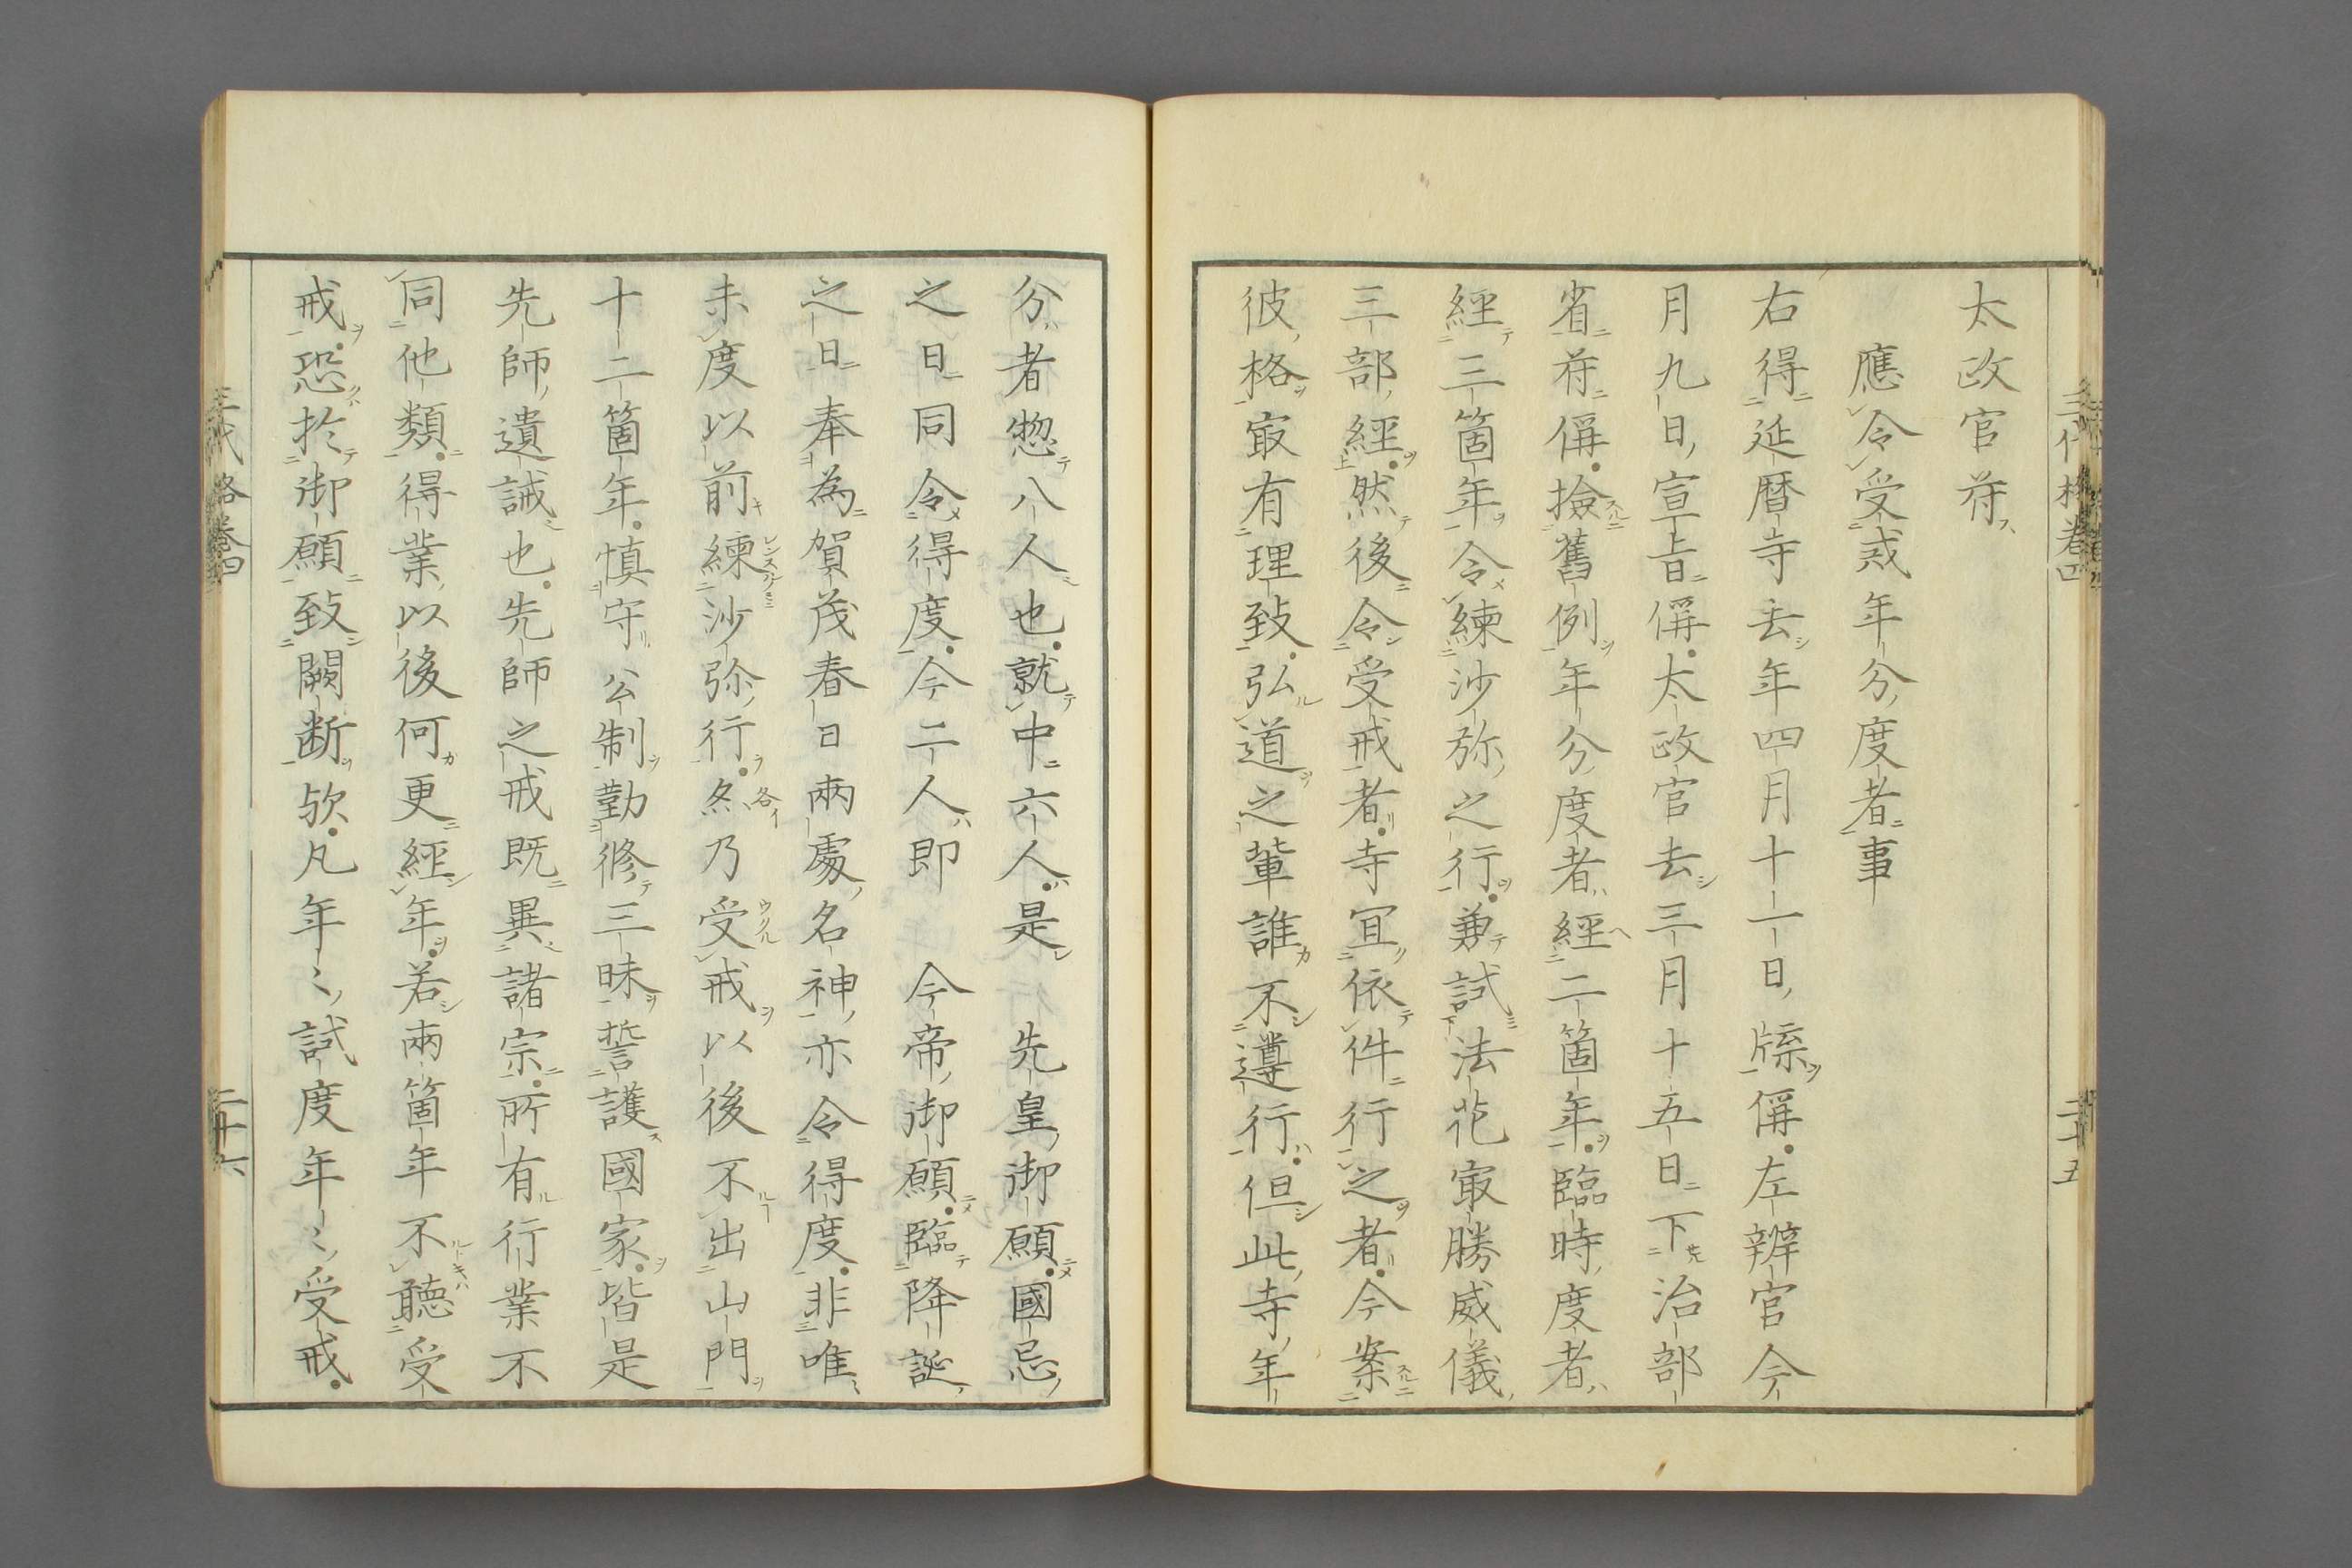 三代格卷四
二十五
太政官苻
應令受戒年分度者事
右得延暦寺去年四月十一日牒偁左辨官今
月九日宣旨偁太政官去三月十五日下治部
省苻偁撿舊例年分度者經二箇年臨時度者
經三箇年令練沙弥之行兼試法花㝡勝威儀
三部經然後令受戒者寺冝依件行之者今案
彼格㝡有理致弘道之輩誰不遵行但此寺年
分者惣八人也就中六人是 先皇御願國忌
之日同令得度今二人即 今帝御願臨降誕
之日奉為賀茂春日兩處名神亦令得度非唯
未度以前練沙弥行乃受戒以後不出山門
十二箇年慎守公制勤修三昧誓護國家皆是
先師遺誡也先師之戒既異諸宗所有行業不
同他類得業以後何更經年若兩箇年不聴受
戒恐於御願致闕断欤凡年〻試度年〻受戒
三代格卷四
二十六